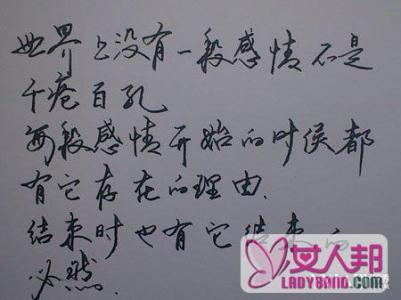 世界上没有一段感情不是
千疮百孔
每段感情开始的时侯都
有它存在的理由.
结束时也有它结束的
必然.
女人帮
LADYBAND.COM